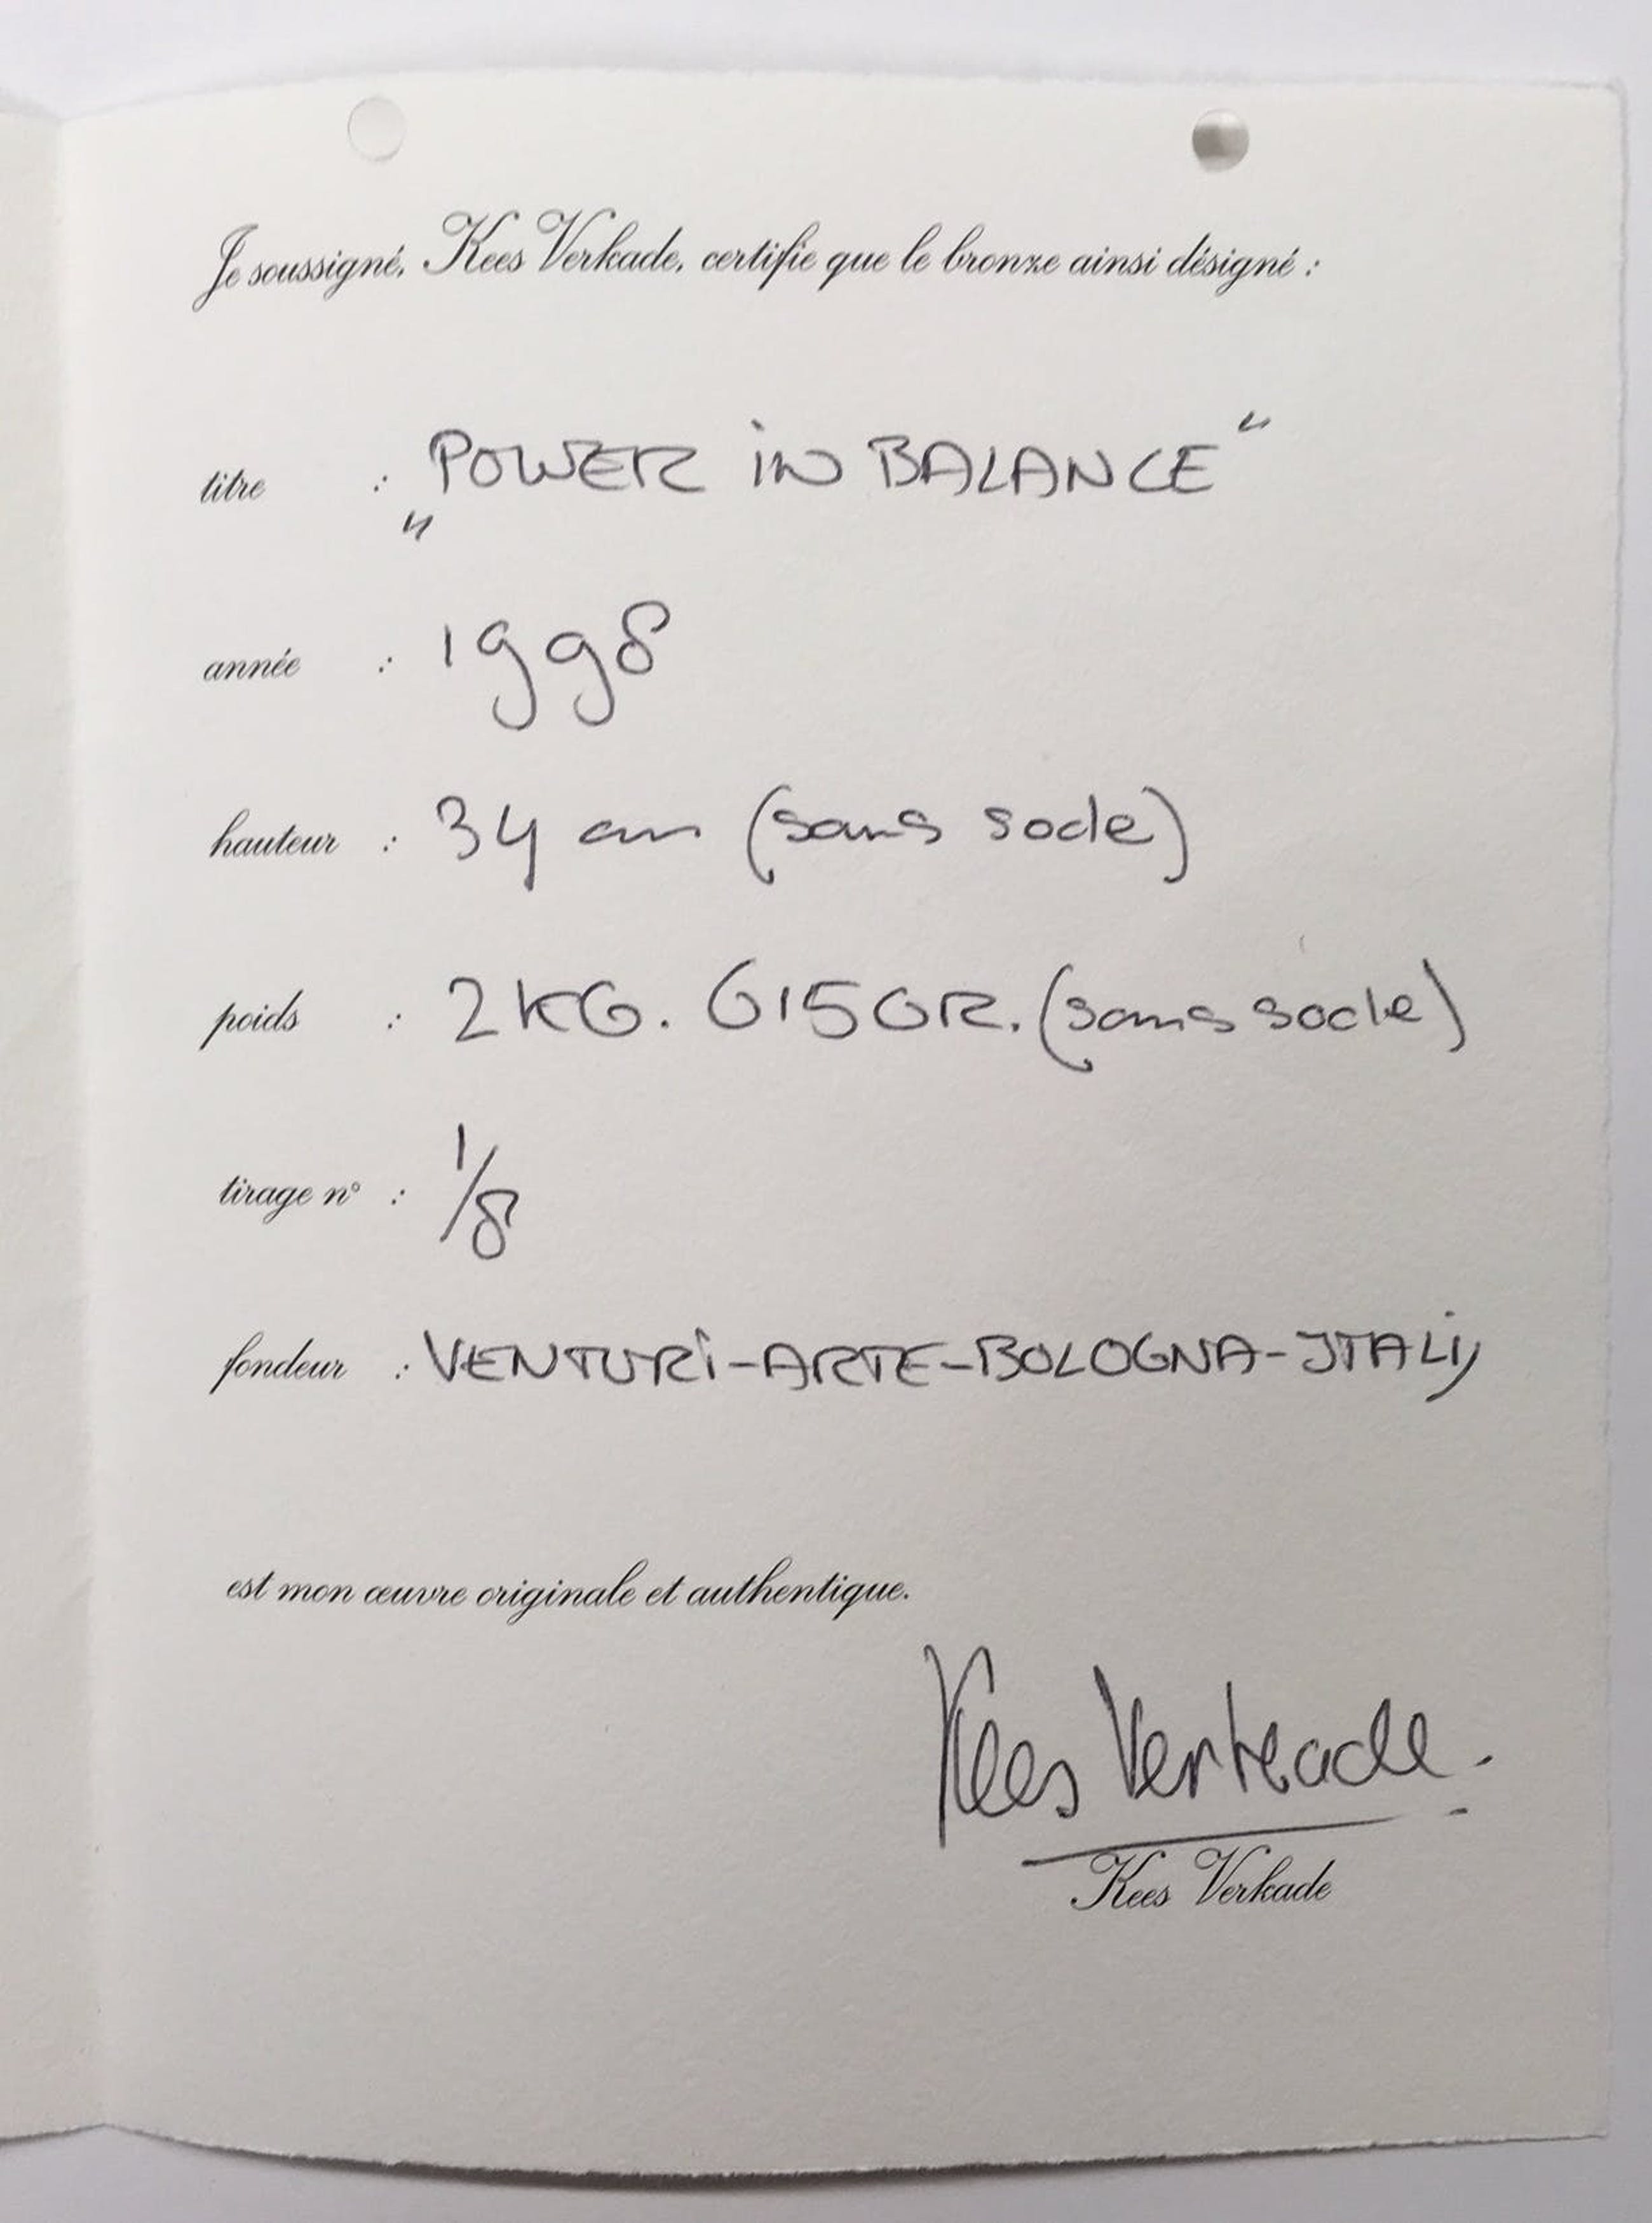 Je soussigné, Kees Verkade, certifie que le bronze ainsi désigné :
titre : „POWER iN BALANCE“
année : 1998
hauteur : 34 cm (sans socle)
poids : 2 KG. 615 GR. (sans socle)
tirage n° : 1/8
fondeur : VENTURi-ARTE-BOLOGNA-ITALIJ
est mon œuvre originale et authentique.
Kees Verkade.
Kees Verkade